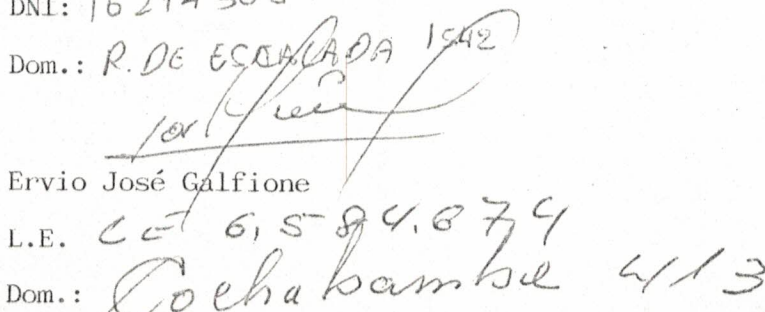 DNI: 16214
Dom.: R. DE ESCALADA 1542
Ervio José Galfione
L.E. LE 6,584.874
Dom.: Cochabamba 413